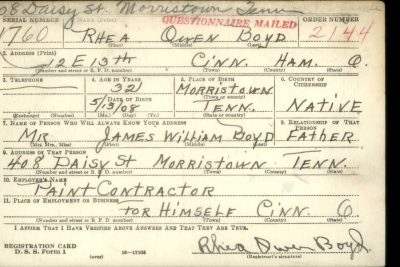 08 Daisy St. Morristown Tenn
SERIAL NUMBER 1. NAME (Print) ORDER NUMBER
QUESTIONNAIRE MAILED
1760 RHEA OWEN BOYD 2144
(First) (Middle) (Last)
2. ADDRESS (Print)
12 E 13th CINN. HAM. O.
(Number and street or R. F. D. number) (Town) (County) (State)
3. TELEPHONE 4. AGE IN YEARS 5. PLACE OF BIRTH 6. COUNTRY OF CITIZENSHIP
32 MORRISTOWN
(Town or county)
DATE OF BIRTH
5/5 08 TENN. NATIVE
(Exchange) (Number) (Mo.) (Day) (Yr.) (State or country)
7. NAME OF PERSON WHO WILL ALWAYS KNOW YOUR ADDRESS 8. RELATIONSHIP OF THAT PERSON
MR. JAMES WILLIAM BOYD FATHER
(Mr., Mrs., Miss) (First) (Middle) (Last)
9. ADDRESS OF THAT PERSON
408 DAISY ST MORRISTOWN TENN.
(Number and street or R. F. D. number) (Town) (County) (State)
10. EMPLOYER'S NAME
PAINT CONTRACTOR
11. PLACE OF EMPLOYMENT OR BUSINESS
FOR HIMSELF CINN. O
(Number and street or R. F. D. number) (Town) (County) (State)
I AFFIRM THAT I HAVE VERIFIED ABOVE ANSWERS AND THAT THEY ARE TRUE.
REGISTRATION CARD
D. S. S. Form 1 (over) 16-17105
Rhea Owen Boyd
(Registrant's signature)